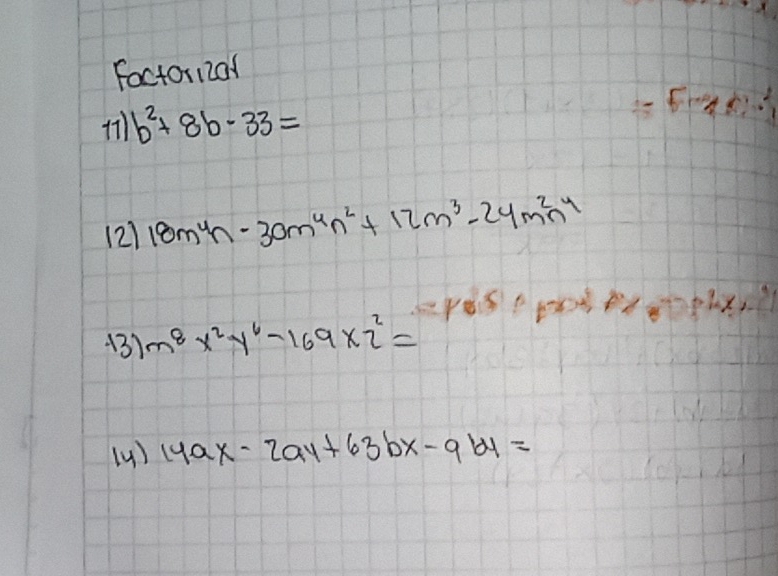 Factorizar
11) b² + 8b - 33 =
12) 18m⁴n - 30m⁴n² + 12m³ - 24m²n⁴
13) m⁸ x² y⁶ - 169 x z² =
14) 14ax - 2ay + 63bx - 9by =